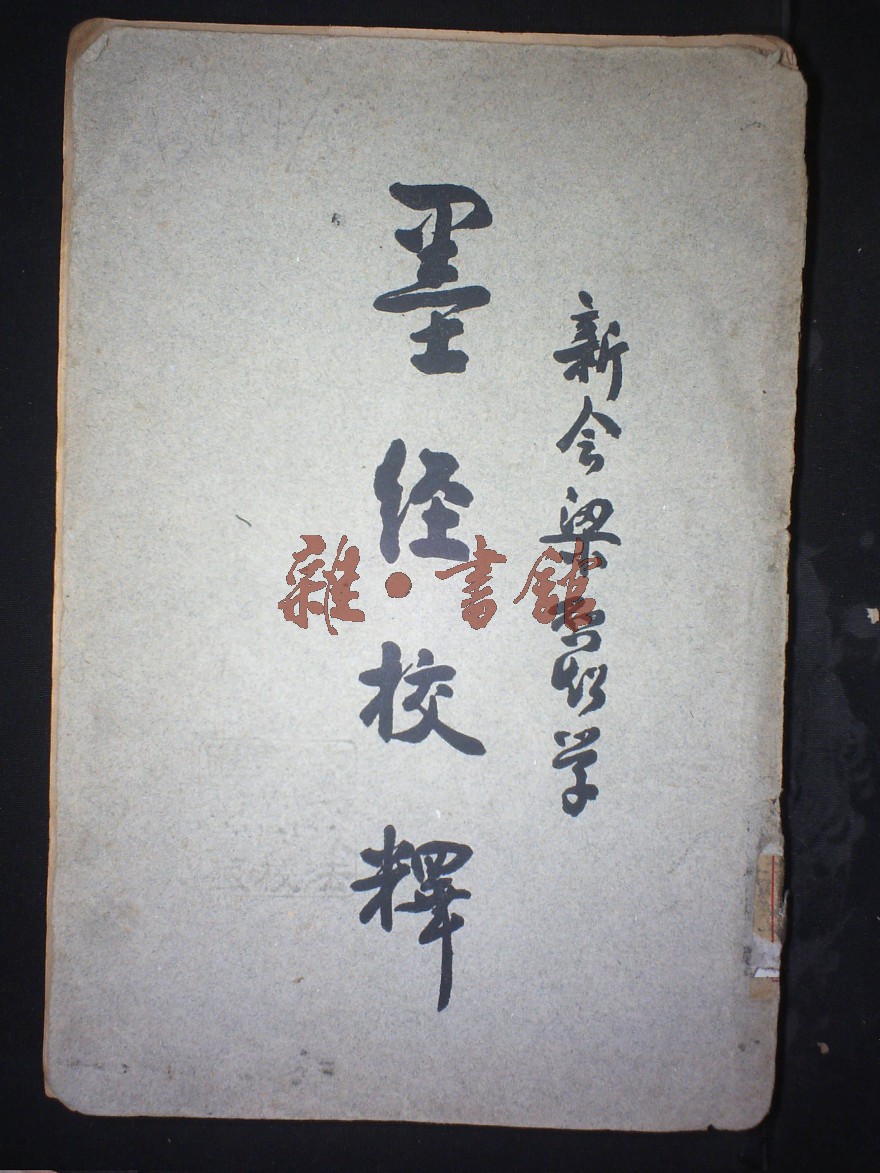 新会梁启超学
墨经校釋
雜·書館